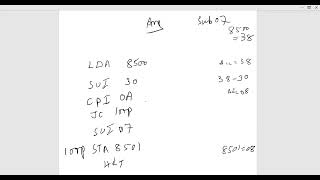 Ans
Sub 07
8500
=38
LDA 8500
Ac=38
SUI 30
38-30
CPI 0A
Ac=08
JC loop
SUI 07
loop STA 8501
8501=08
HLT